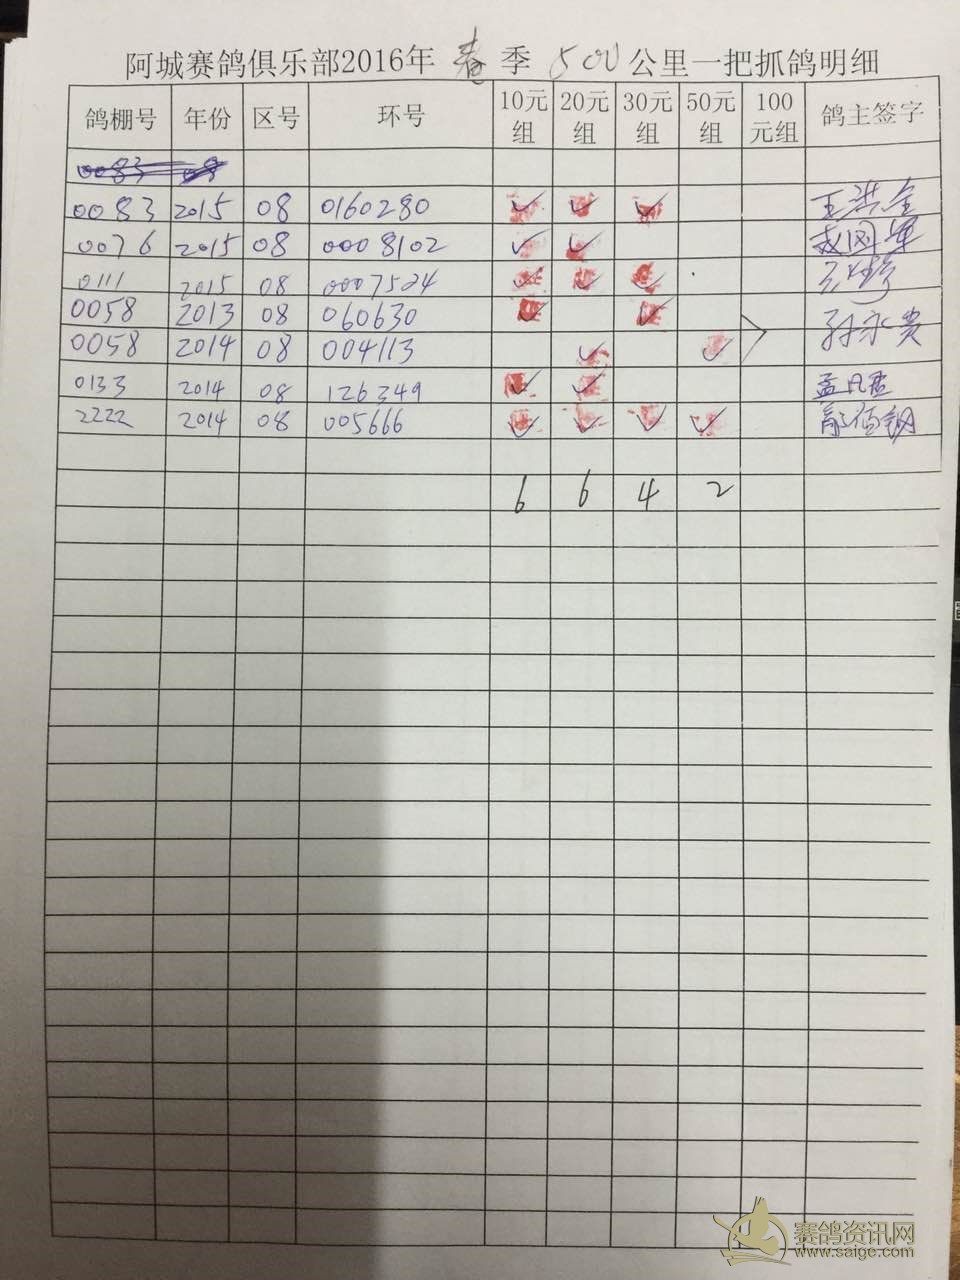 阿城赛鸽俱乐部2016年春季500公里一把抓鸽明细
鸽棚号 年份 区号 环号 10元组 20元组 30元组 50元组 100元组 鸽主签字
0083 08
0083 2015 08 0160280 ✓ ✓ ✓ 王洪全
0076 2015 08 0008102 ✓ ✓
0111 2015 08 0007524 ✓ ✓ ✓
0058 2013 08 060630 ✓ ✓ 孙永贵
0058 2014 08 004113 ✓ ✓
0133 2014 08 126349 ✓ ✓ 孟凡君
2222 2014 08 005666 ✓ ✓ ✓ ✓
6 6 4 2
赛鸽资讯网
www.saige.com